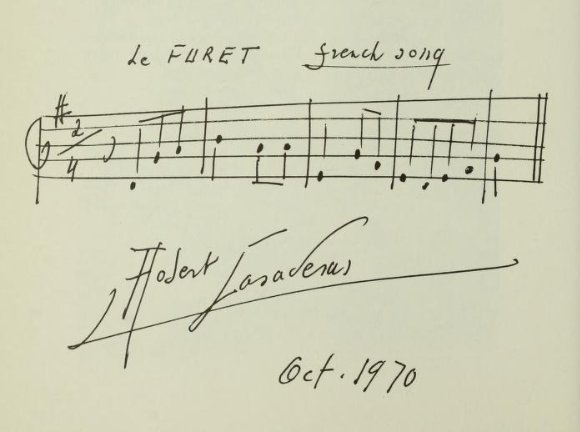 Le FURET french song
2
4
Robert Casadesus
Oct. 1970